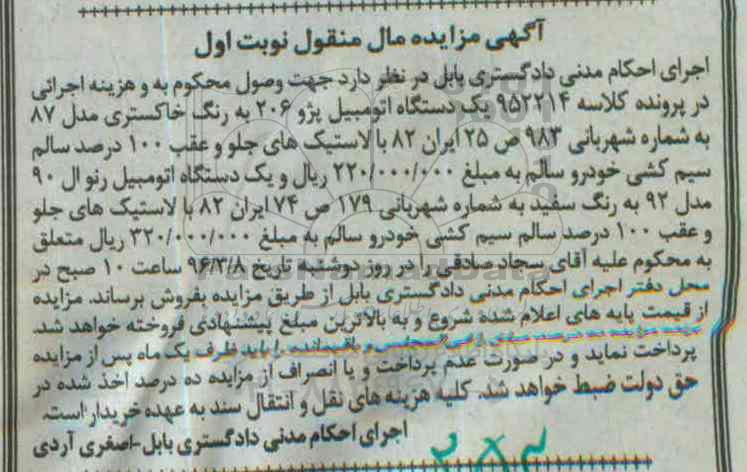 آگهی مزایده مال منقول نوبت اول
اجرای احکام مدنی دادگستری بابل در نظر دارد جهت وصول محکوم به و هزینه اجرائی
در پرونده کلاسه ۹۵۲۲۱۴ یک دستگاه اتومبیل پژو ۲۰۶ به رنگ خاکستری مدل ۸۷
به شماره شهربانی ۹۸۳ ص ۲۵ ایران ۸۲ با لاستیک های جلو و عقب ۱۰۰ درصد سالم
سیم کشی خودرو سالم به مبلغ ۲۲۰/۰۰۰/۰۰۰ ریال و یک دستگاه اتومبیل رنو ال ۹۰
مدل ۹۲ به رنگ سفید به شماره شهربانی ۱۷۹ ص ۷۴ ایران ۸۲ با لاستیک های جلو
و عقب ۱۰۰ درصد سالم سیم کشی خودرو سالم به مبلغ ۳۲۰/۰۰۰/۰۰۰ ریال متعلق
به محکوم علیه آقای سجاد صادقی را در روز دوشنبه تاریخ ۹۶/۳/۸ ساعت ۱۰ صبح در
محل دفتر اجرای احکام مدنی دادگستری بابل از طریق مزایده بفروش برساند. مزایده
از قیمت پایه های اعلام شده شروع و به بالاترین مبلغ پیشنهادی فروخته خواهد شد.
برنده مزایده ده درصد مبلغ را فی المجلس و باقیمانده را باید ظرف یک ماه پس از مزایده
پرداخت نماید و در صورت عدم پرداخت و یا انصراف از مزایده ده درصد اخذ شده در
حق دولت ضبط خواهد شد. کلیه هزینه های نقل و انتقال سند به عهده خریدار است.
اجرای احکام مدنی دادگستری بابل-اصغری آردی